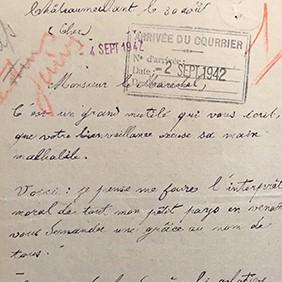 Châteaumeillant le 30 août
(Cher)
4 SEPT 1942
ARRIVÉE DU COURRIER
N° d'arrivée:
Date: 2 SEPT. 1942
Monsieur le Maréchal,
C'est un grand mutilé qui vous écrit,
que votre bienveillance excuse sa main
malhabile.
Voici: je pense me faire l'interprète
moral de tout mon petit pays en venant
vous demander une grâce au nom de
tous!